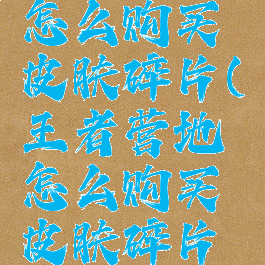 怎么购买
皮肤碎片(
王者营地
怎么购买
皮肤碎片